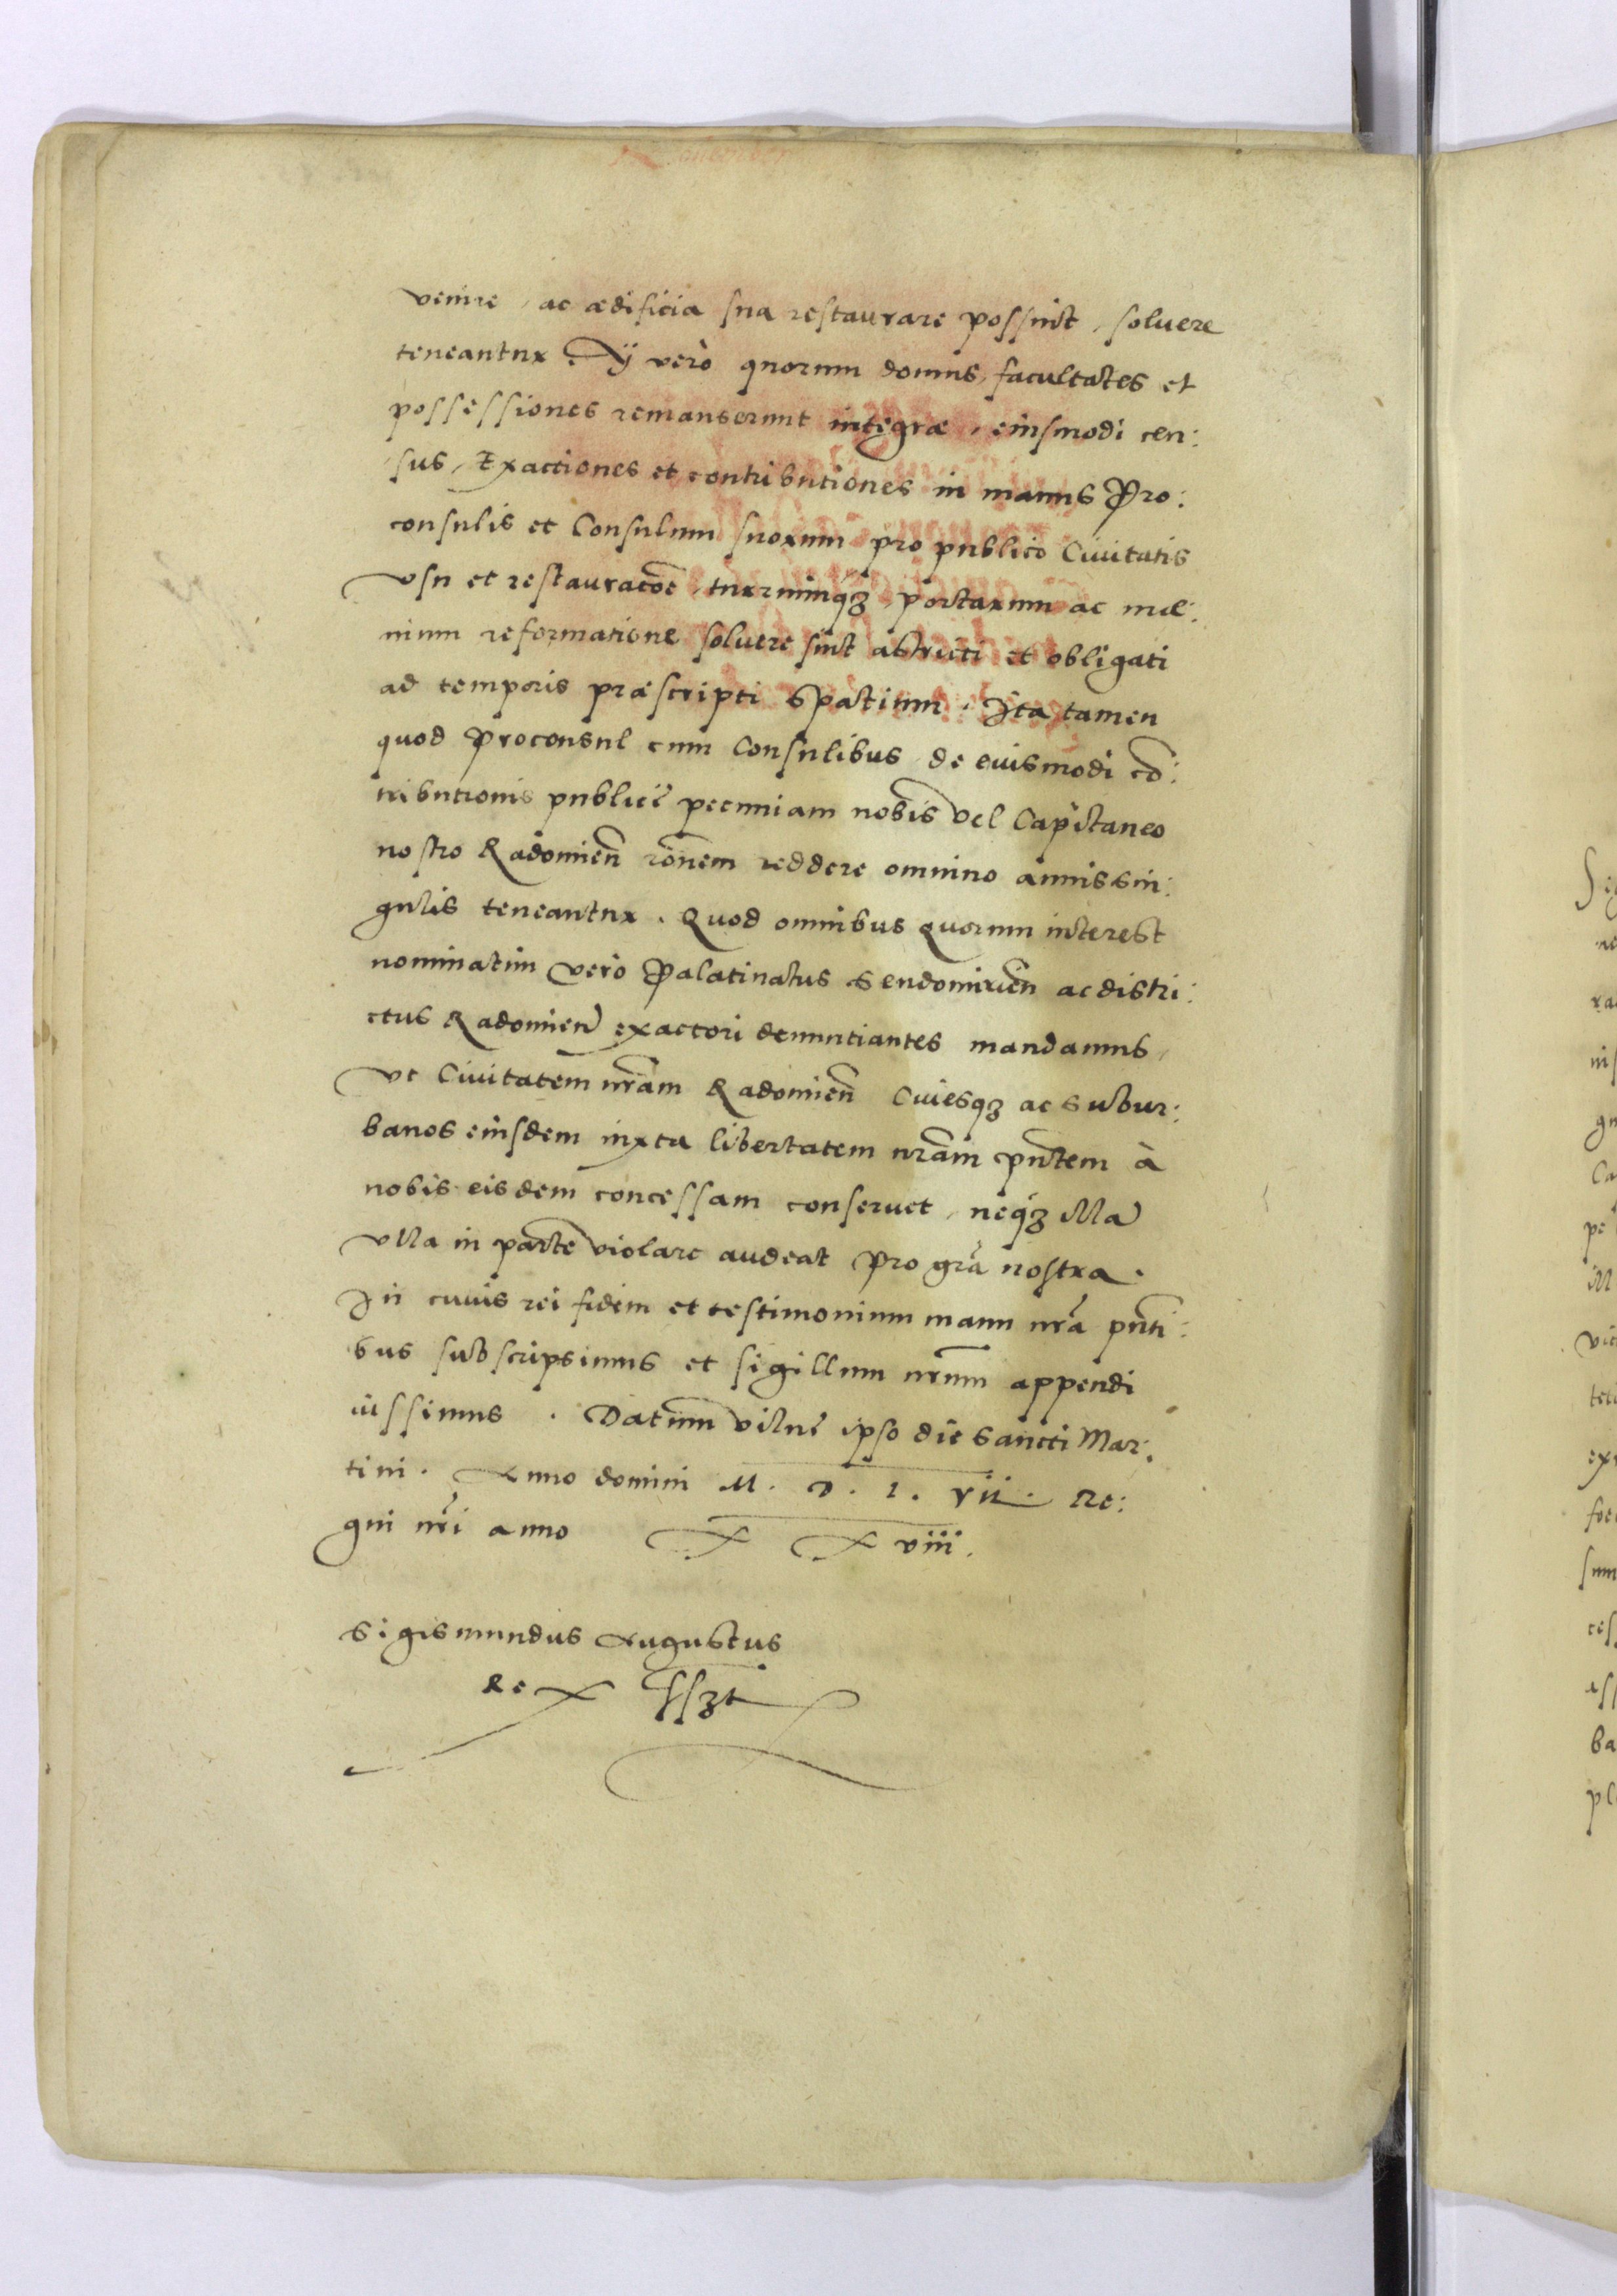 venire, ac ædificia sua restaurare possint, soluere
teneantur. Ij verò quorum domus, facultates et
possessiones remanserunt integræ, eiusmodi cen:
sus, Exactiones et contributiones in manus Pro:
consulis et Consulum suorum pro publico Ciuitatis
vsu et restauracõe, turriumq́ꝫ, portarum ac mœ:
nium reformatione soluere sint astricti et obligati
ad temporis præscripti spatium. Ita tamen
quod Proconsul cum Consulibus de eiusmodi cõ:
tributionis publicę pecuniam nobis vel Capitaneo
nostro Radomieñ rõnem reddere omnino annis sin:
gulis teneantur. Quod omnibus quorum interest
nominatim verò Palatinatus Sendomirieñ ac distri:
ctus Radomieñ exactori denuntiantes mandamus,
vt Ciuitatem nr̃am Radomieñ Ciuesqꝫ ac subur:
banos eiusdem iuxta libertatem nr̃am pñtem à
nobis eisdem concessam conseruet, neq́ꝫ illã
vlla in parte violare audeat pro gr̃a nostra.
In cuius rei fidem et testimonium manu nr̃a pñti:
bus subscripsimus et sigillum nr̃um appendi
iussimus. Datum Vilnę ipso die Sancti Mar:
tini. Anno domini M. D. L. vii. Re:
gni nr̃i anno X X viii.
Sigismundus Augustus
Rex sszt